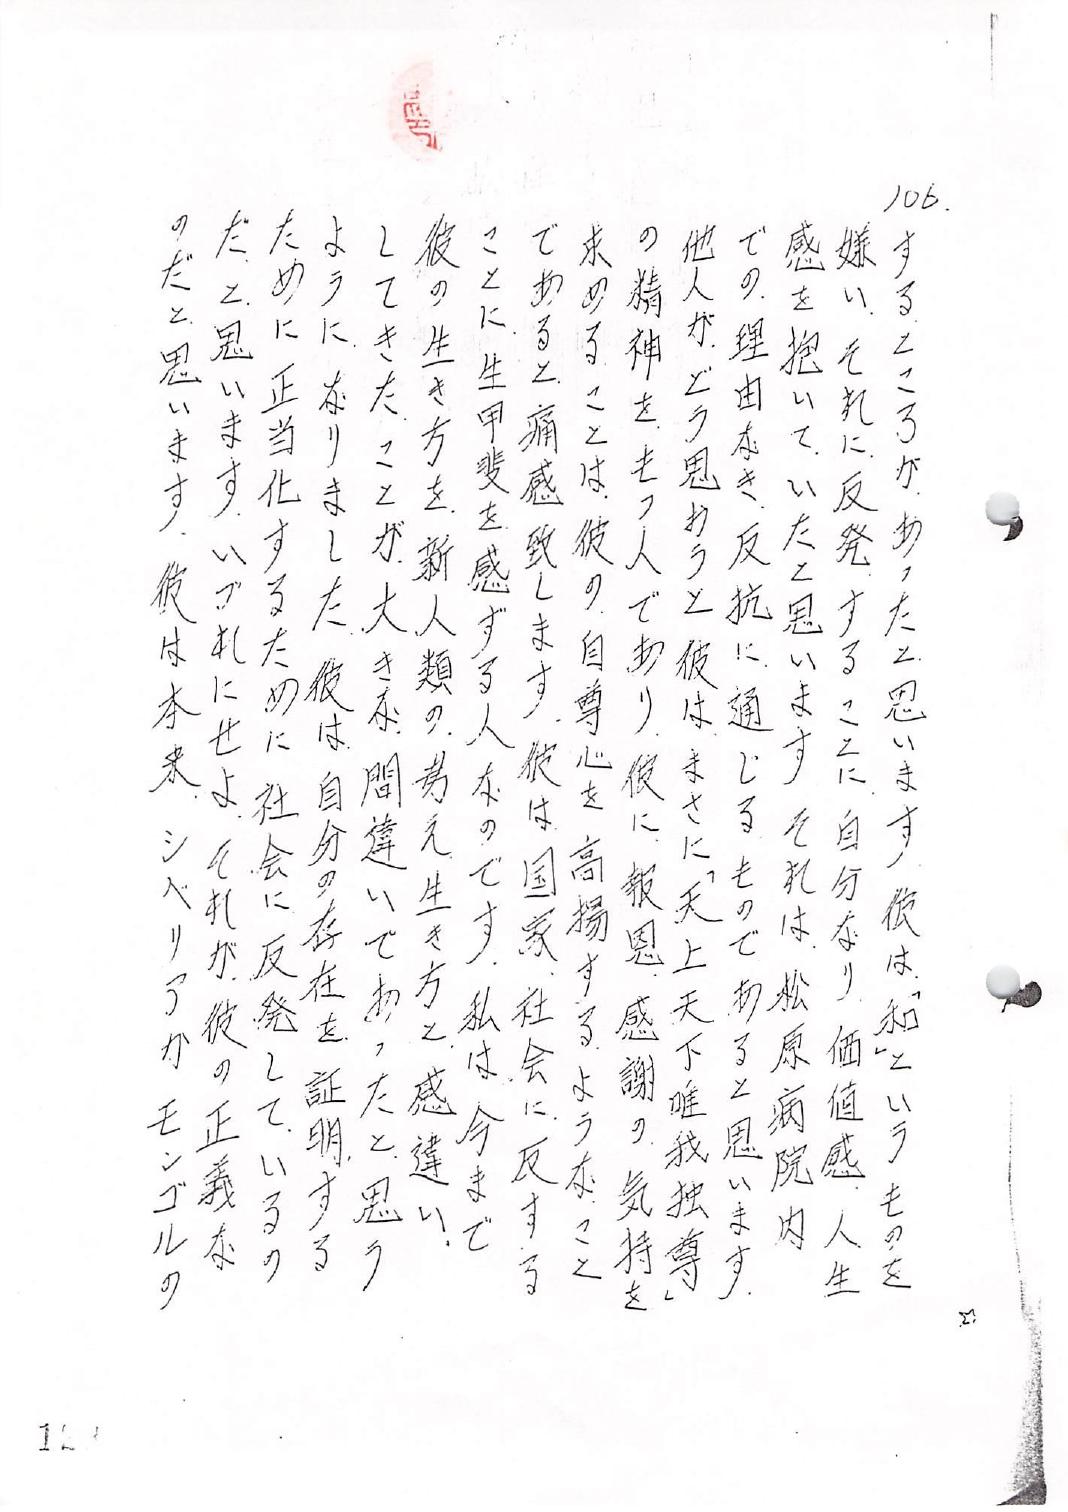 106.
するところが、あったと、思います。彼は、「和」というものを
嫌い、それに、反発、することに、自分なり、価値感、人生
感を抱いて、いたと思います それは、松原病院内
での、理由なき、反抗に、通じるもので、あると思います。
他人が、どう思おうと彼は、まさに、「天上天下唯我独尊」
の精神を、もつ人であり、彼に、報恩、感謝の、気持を
求めることは、彼の、自尊心を高揚するような、こと
であると、痛感致します。彼は、国家、社会に、反する
ことに、生甲斐を感ずる人なのです。私は、今まで
彼の生き方を、新人類の、考え、生き方と、感違い、
してきた、ことが、大きな、間違いであったと、思う
ように、なりました、彼は、自分の存在を、証明、する
ために、正当化するために、社会に、反発して、いるの
だ、と、思います、いづれにせよ、それが、彼の正義な
のだと、思います、彼は本来、シベリアか、モンゴルの